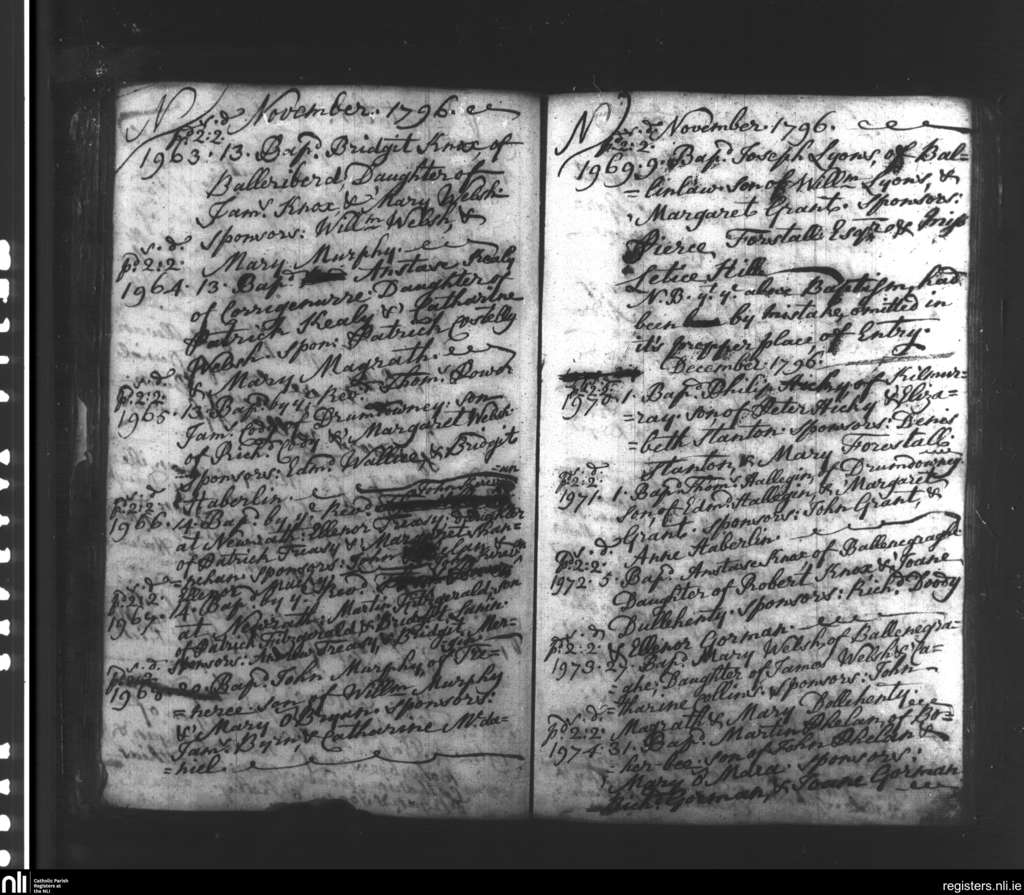 N November. 1796.
s. d
pd. 2:2.
1963. 13. Bapd. Bridgit Knox, of
Balleriberd, Daughter of
Jams. Knox & Mary Welsh
Sponsors: Willm. Welsh, &
s. d. Mary Murphy.
pd. 2:2.
1964. 13. Bapd. Anstase Kealy
of Corrigenurre Daughter of
Patrick Kealy & Catharine
Welsh. Spon: Patrick Costelly
& Mary Magrath.
s. d.
pd. 2:2.
1965. 13. Bapd. by ye. Revd. Thoms. Power
Jams. Cody of Drumdowney: son
of Richd. Cody & Margaret Welsh
Sponsors: Edmd. Wallice, & Bridgit
Haberlin.
s. d.
pd. 2:2.
1966. 14. Bapd. by ye. Revd. John
at Newrath: Ellenor Treasy: Daughter
of Patrick Treasy & Margaret Shan=
=nehan. Sponsors: John &
s. d. Ellenor
pd. 2:2.
1967. 14. Bapd. by ye. Revd.
at Newrath: Martin Fitzgerald, son
of Patrick Fitzgerald & Bridgit
Sponsors: Andrew Treasy & Bridgit
s. d.
1968. 20. Bapd. John Murphy, of
=heree son of Willm. Murphy
& Mary O'Bryan. Sponsors:
Jams. Byrn, & Catharine McDa=
=niel.
N November. 1796.
s. d.
pd. 2:2.
1969. 9. Bapd. Joseph Lyons, of Bal=
=linlaw. son of Willm. Lyons, &
Margaret Grant. Sponsors:
Pierce Forstall Esqr. & Miss
Letice Hill
N.B. yt. ye. above Baptism, had
been by mistake omitted in
it's propper place, of Entry.
December 1796
pd. 2:2.
1970. 1. Bapd. Philip Hichy of Kilmur=
=ray. son of Peter Hichy & Eliza=
=beth Stanton. Sponsors: Denis
Stanton, & Mary Forestall.
s. d.
pd. 2:2.
1971. 1. Bapd. Thoms. Hallegin, of Drumdowney
son, of Edmd. Hallegin, & Margaret
Grant. Sponsors: John Grant, &
s. d. Anne Haberlin.
pd. 2:2.
1972. 5. Bapd. Anstase Knox of Ballenegraghe
Daughter of Robert Knox & Joane
Dullehenty. Sponsors: Richd. Doody
s. d. & Ellenor Gorman.
pd. 2:2.
1973. 27. Bapd. Mary Welsh, of Ballenegra=
=ghe; Daughter of James Welsh & Ca=
=tharine Collins: Sponsors: John
s. d. Magrath & Mary Dollehenty.
pd. 2:2.
1974. 31. Bapd. Martin Phelan, of Bo=
=her-bee. son of John Phelan &
Mary O'Mara. Sponsors:
Richd. Gorman, & Joane Gorman
nli
Catholic Parish
Registers at
the NLI
registers.nli.ie